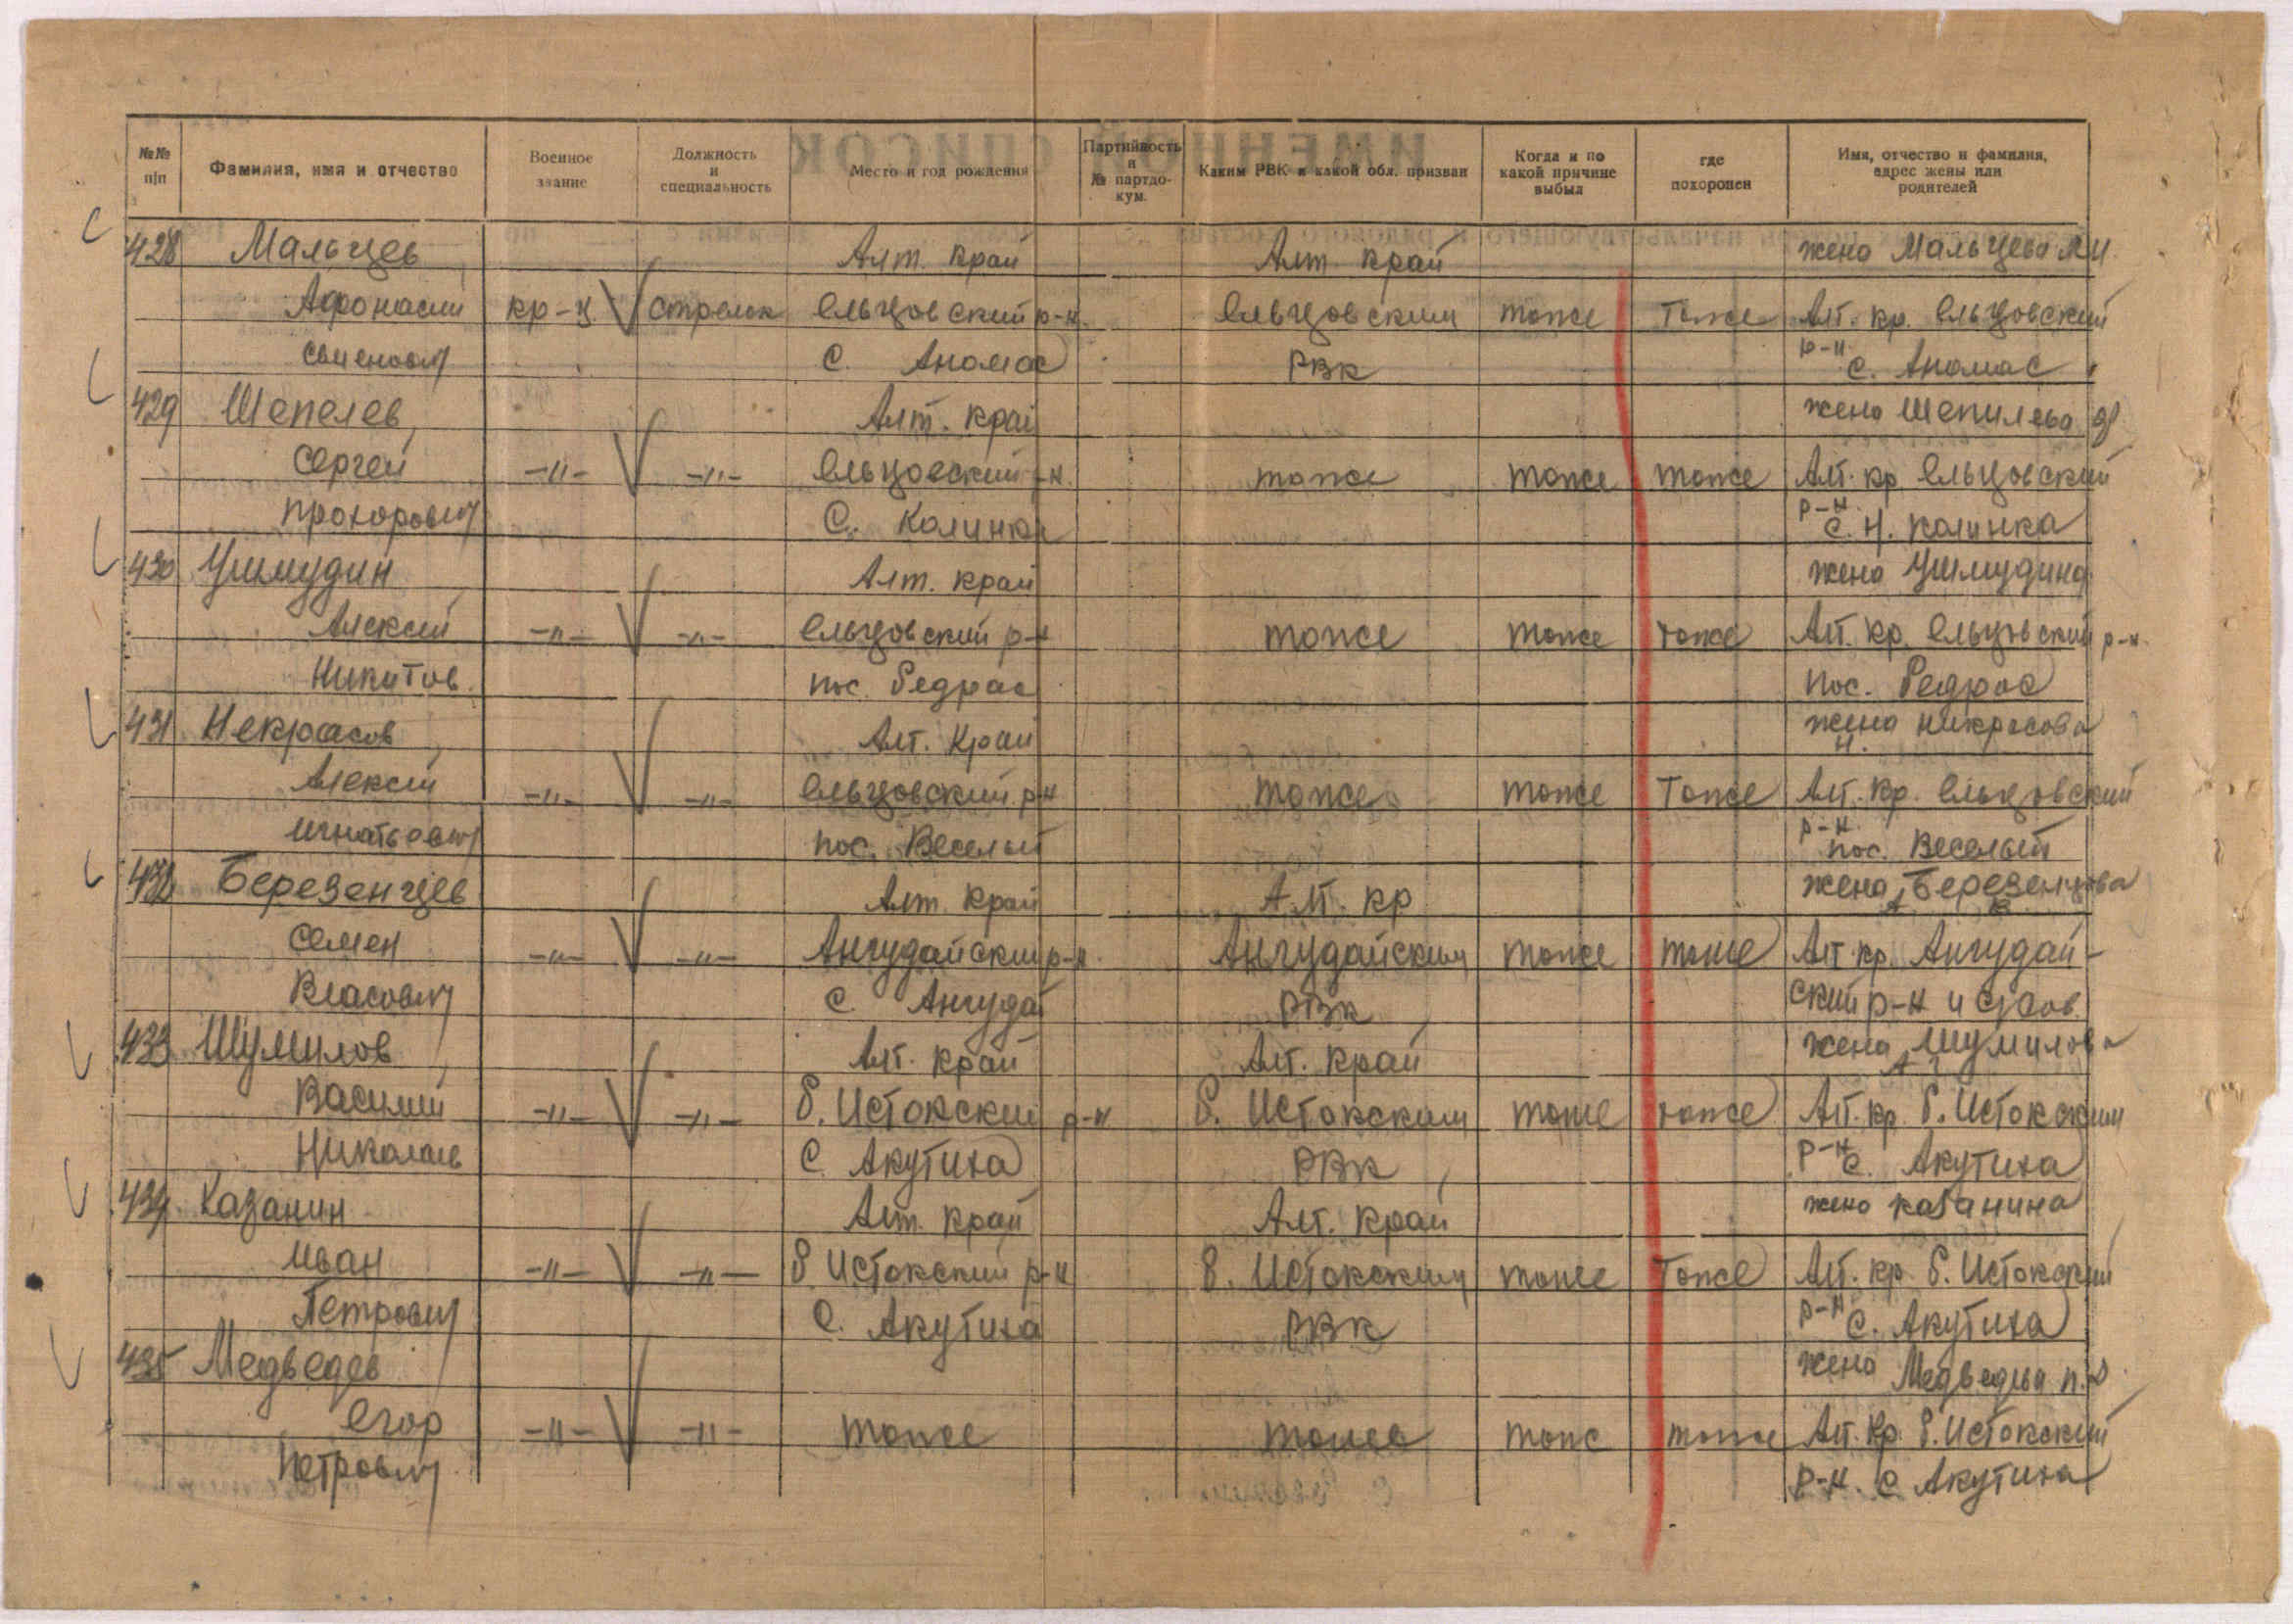 №№ п/п
Фамилия, имя и отчество
Военное звание
Должность и специальность
Место и год рождения
Партийность и № партдо-кум.
Каким РВК и какой обл. призван
Когда и по какой причине выбыл
где похоронен
Имя, отчество и фамилия, адрес жены или родителей
428 Мальцев Алт. край Алт. край жена Мальцева М.И.
Афонасий кр-ц стрелок Ельцовский р-н. Ельцовским тоже Тоже Алт. кр. Ельцовский
р-н
Свиенович С. Апомас РВК С. Апомас
429 Шепелев Алт. край жена Шепилева
Сергей -"- -"- Ельцовский р-н. тоже тоже тоже Алт. кр Ельцовский
р-н.
Прохорович С. Калинка С. Н. Калинка
430 Ушмудин Алт. край жена Ушмудина
Алексей -"- -"- Ельцовский р-н тоже тоже тоже Алт. кр. Ельцовский р-н.
Никитов. пос. Бедрас пос. Бедрас
431 Некрасов Алт. Край жена Никрасова
Н.
Алексей -"- -"- Ельцовский р-н тоже тоже Тоже Алт. Кр. Ельцовский
р-н.
Игнатьевич пос. Веселый пос. Веселый
432 Березенцев Алт. Край Алт. кр жена Березенцова
Семен -"- -"- Ангудайский р-н. Ангудайским тоже тоже Алт. кр. Ангудай-
Власович С Ангудай РВК ский р-н
433 Шумилов Алт. край Алт. край жена Шумилова
Василий -"- -"- Б. Истокский р-н Б. Истокским тоже тоже Алт. кр. Б. Истокским
Николаев С. Акутиха РВК р-н С. Акутиха
434 Казанин Алт. край Алт. край жена Казанина
Иван -"- -"- Б Истокский р-н Б. Истокским тоже Тоже Алт. кр Б. Истокский
Петрович С. Акутиха РВК р-н С. Акутиха
435 Медведев жена Медведева П.Д.
Егор -"- -"- тоже тоже тоже тоже Алт. Кр. Б. Истокский
Петрович р-н. С Акутиха